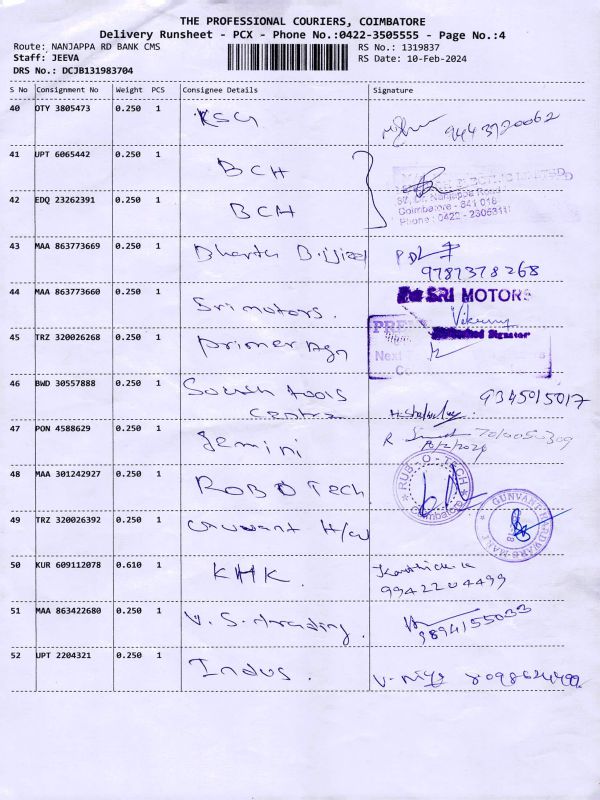 THE PROFESSIONAL COURIERS, COIMBATORE
Delivery Runsheet - PCX - Phone No.:0422-3505555 - Page No.:4
Route: NANJAPPA RD BANK CMS
RS No.: 1319837
Staff: JEEVA
RS Date: 10-Feb-2024
DRS No.: DCJB131983704
S No Consignment No Weight PCS Consignee Details Signature
40 OTY 3805473 0.250 1 KSG 9443720062
41 UPT 6065442 0.250 1 BCH
42 EDQ 23262391 0.250 1 BCH
Nanjappa Road
Coimbatore - 641 018
Phone : 0422 -
43 MAA 863773669 0.250 1
9787378268
44 MAA 863773660 0.250 1 Sri motors.
SRI MOTORS
Signator
45 TRZ 320026268 0.250 1 Primer Agn
Next
46 BWD 30557888 0.250 1 South tools 9345015017
Centra
47 PON 4588629 0.250 1 Gemini
48 MAA 301242927 0.250 1 ROBO Tech
RUB-O-TECH
Coimbatore
49 TRZ 320026392 0.250 1 H/W
GUNVANT HARDWARE MART
50 KUR 609112078 0.610 1 KHK. Karthick K
9942204499
51 MAA 863422680 0.250 1 V. S. trading.
9894155033
52 UPT 2204321 0.250 1 Indus.